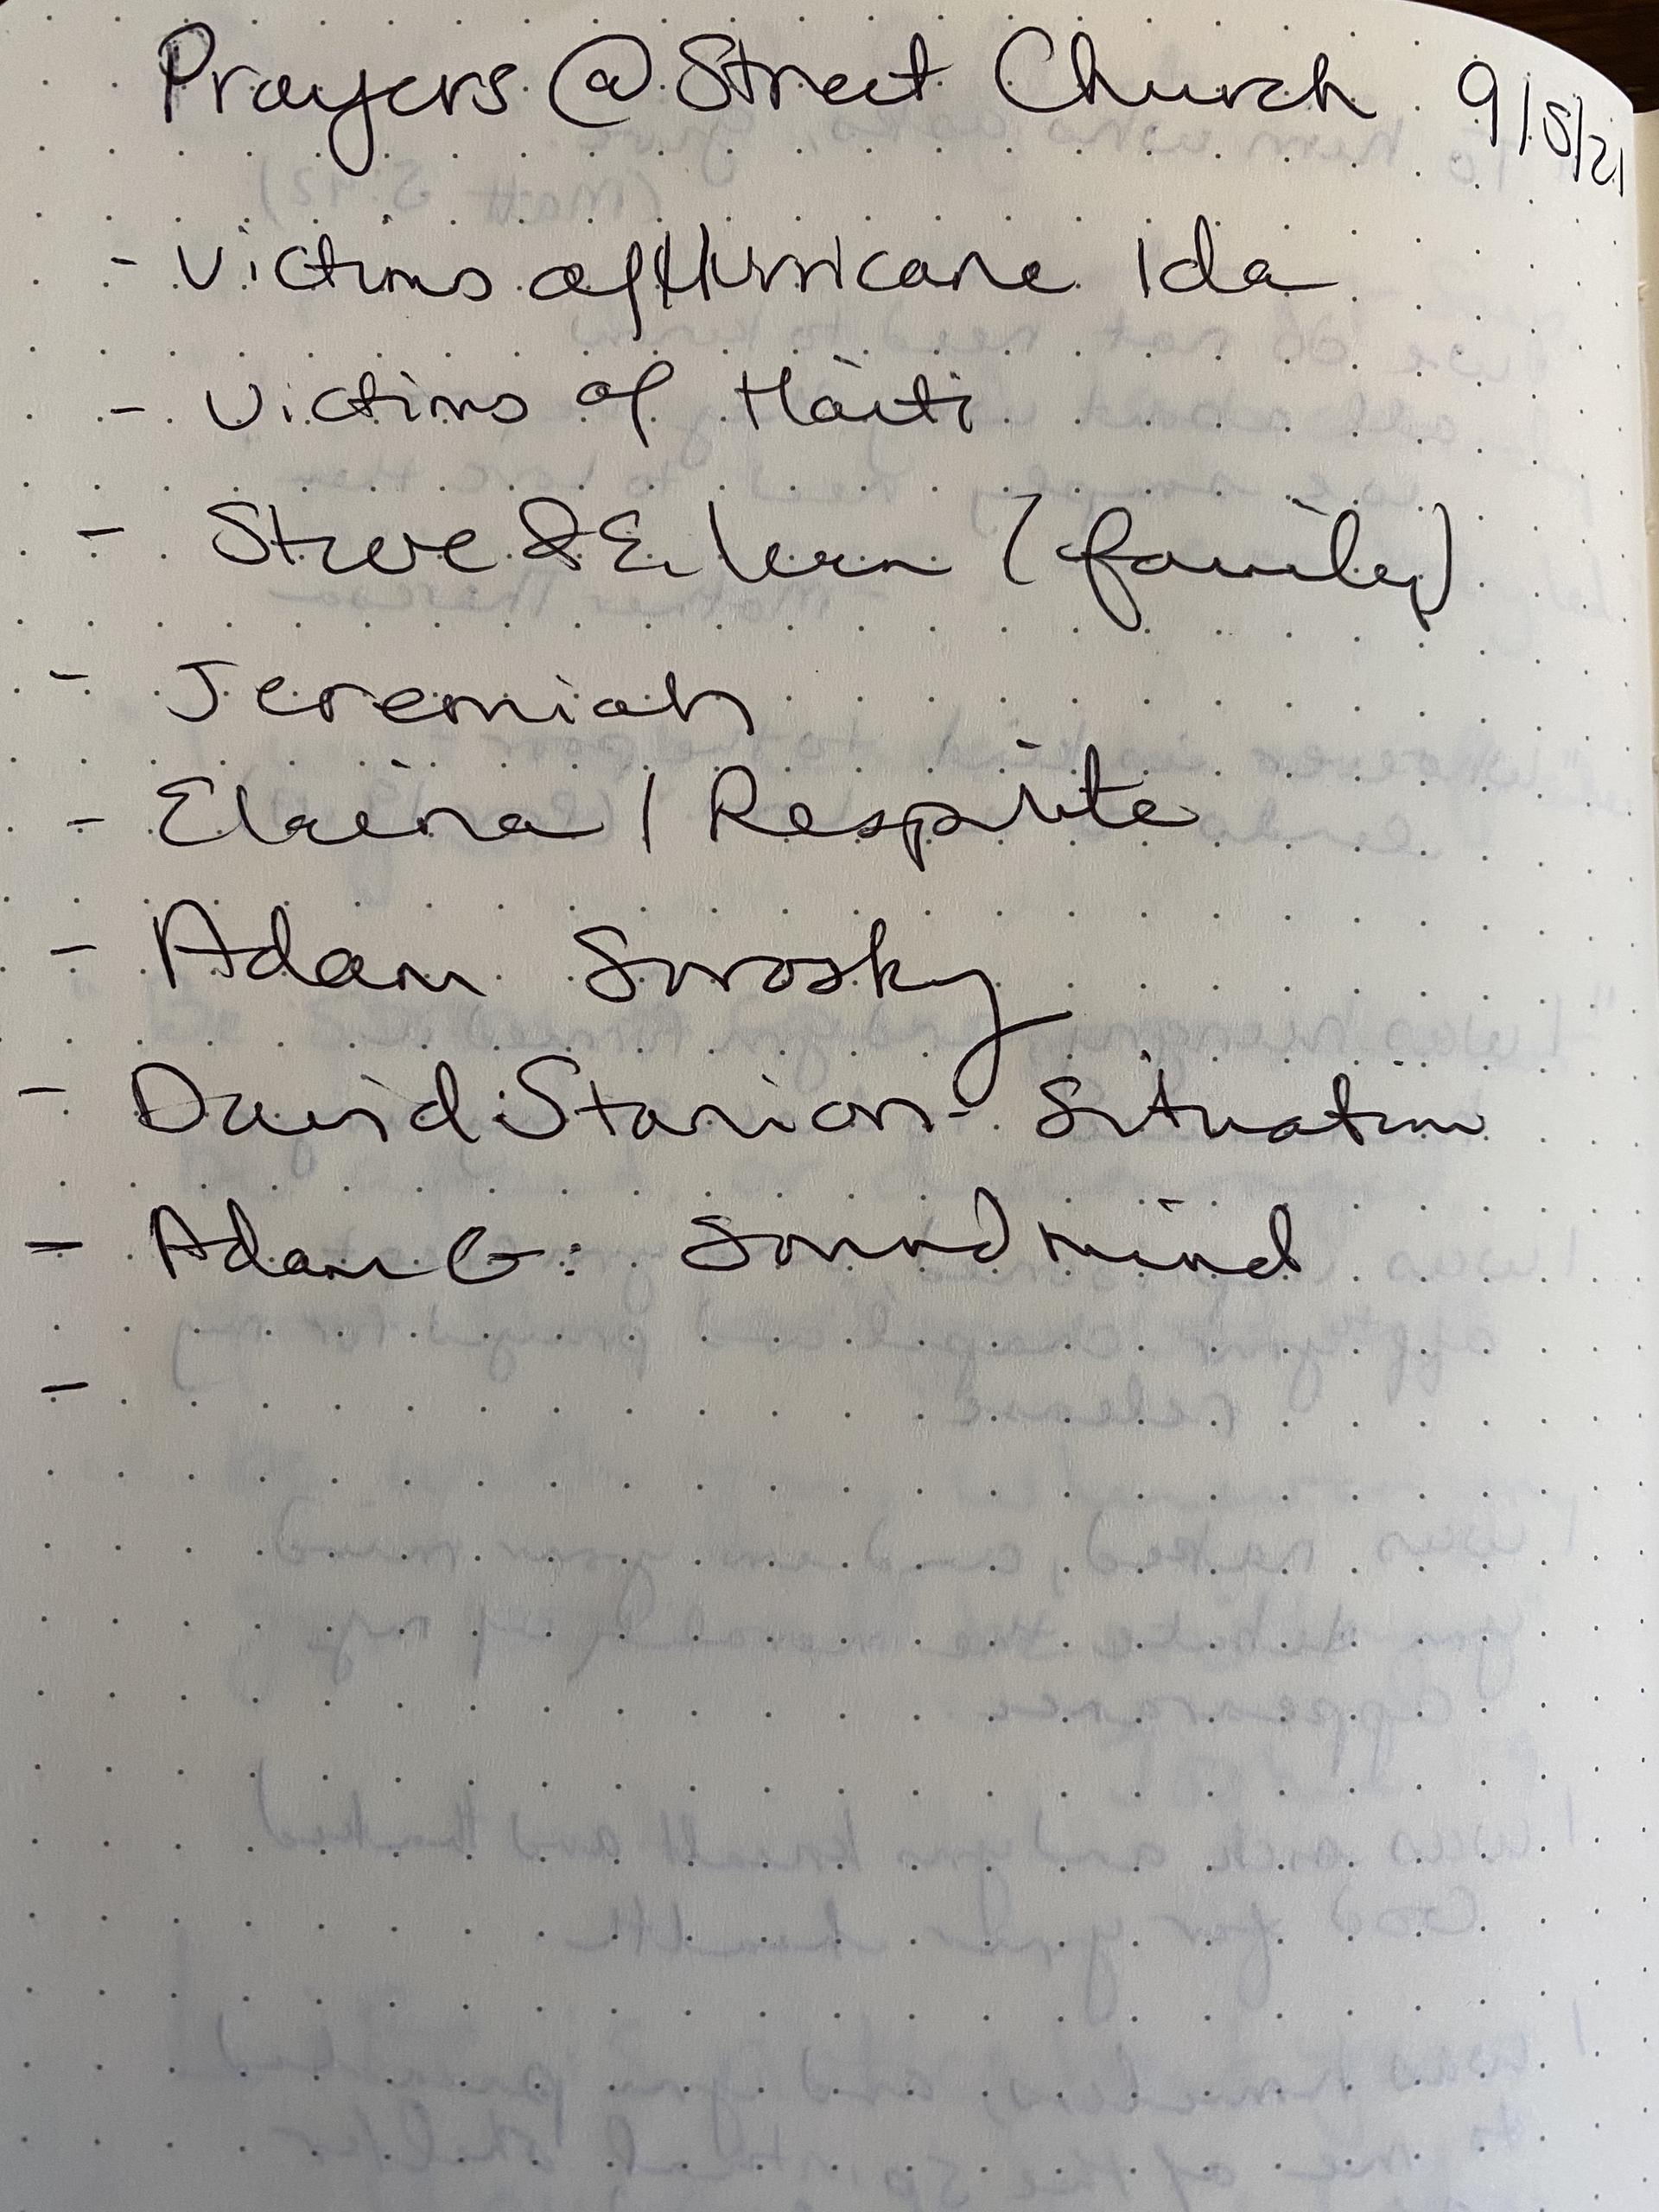 Prayers @ Street Church 9/5/21
- Victims of Hurricane Ida
- Victims of Haiti
- Steve & Eileen (family)
- Jeremiah
- Elaina / Respite
- Adam
- David Stanion - Situation
- Adam G: Sound mind
-